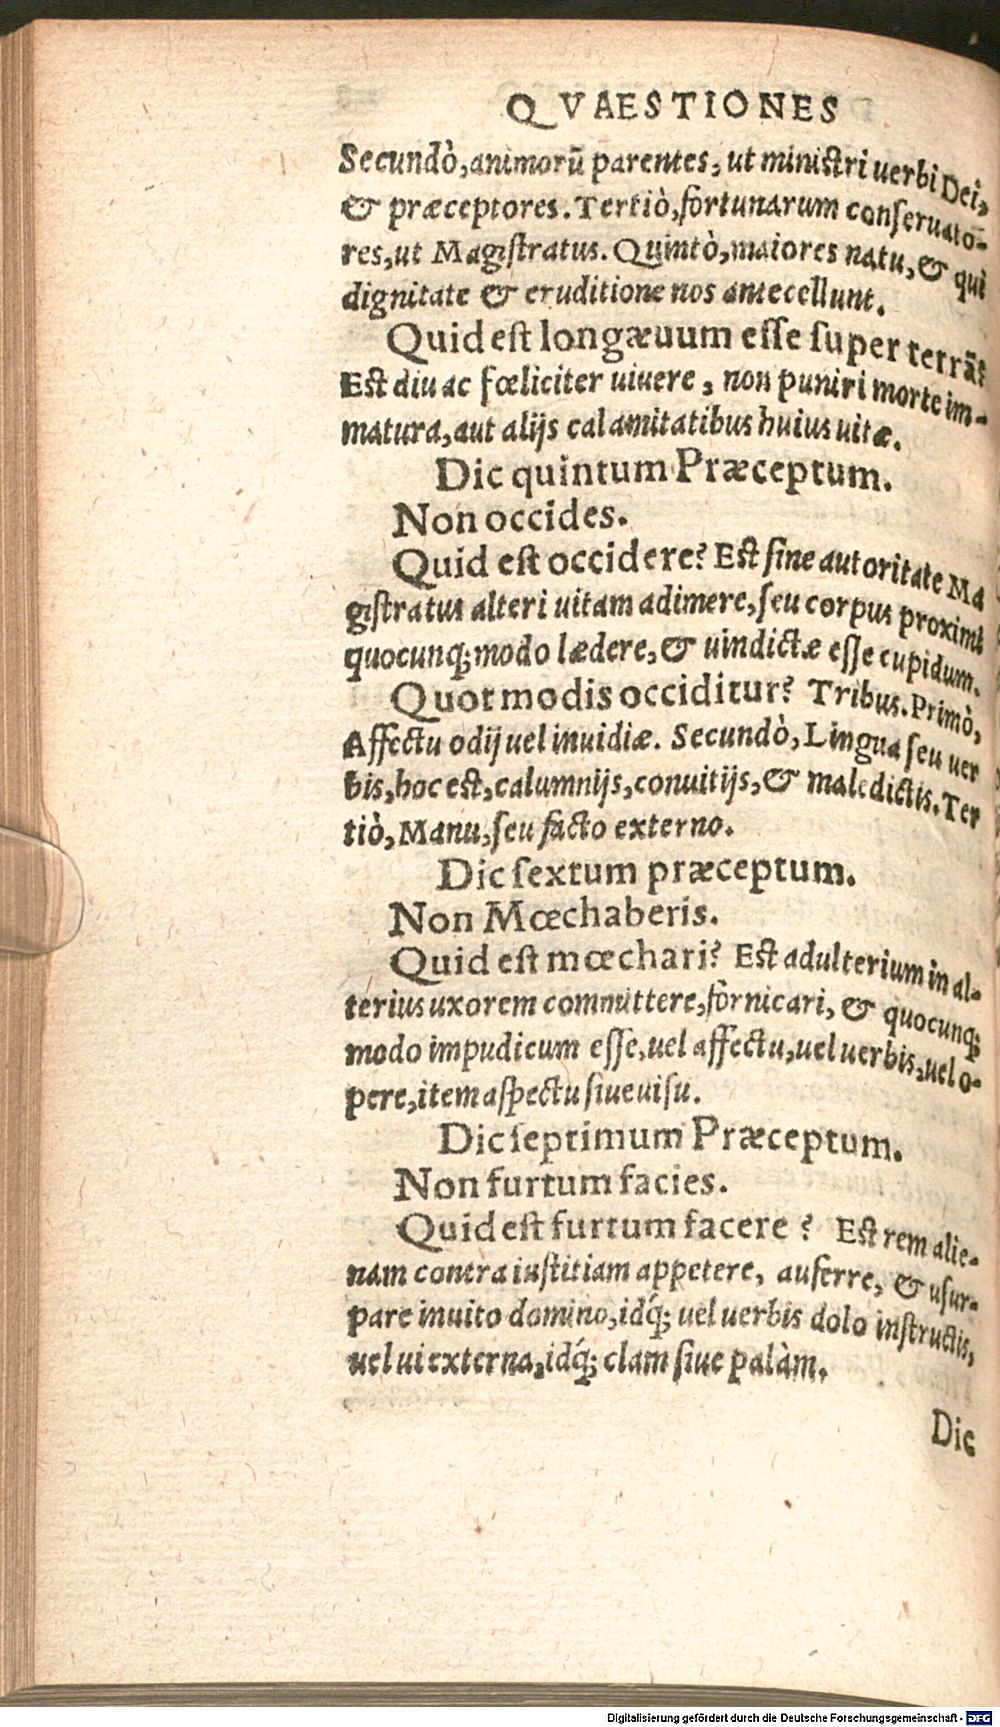 QVAESTIONES
Secundò, animorũ parentes, ut ministri uerbi Dei,
& præceptores. Tertiò, fortunarum conseruato-
res, ut Magistratus. Quintò, maiores natu, & qui
dignitate & eruditione nos antecellunt.
Quid est longæuum esse super terrã?
Est diu ac fœliciter uiuere, non puniri morte im-
matura, aut alijs calamitatibus huius uitæ.
Dic quintum Præceptum.
Non occides.
Quid est occidere? Est sine autoritate Ma
gistratus alteri uitam adimere, seu corpus proximi
quocunq; modo lædere, & uindictæ esse cupidum.
Quot modis occiditur? Tribus. Primò,
Affectu odij uel inuidiæ. Secundò, Lingua seu uer
bis, hoc est, calumnijs, conuitijs, & maledictis. Ter
tiò, Manu, seu facto externo.
Dic sextum præceptum.
Non Mœchaberis.
Quid est mœchari? Est adulterium in al-
terius uxorem committere, fornicari, & quocunq;
modo impudicum esse, uel affectu, uel uerbis, uel o-
pere, item aspectu siue uisu.
Dic septimum Præceptum.
Non furtum facies.
Quid est furtum facere? Est rem alie-
nam contra iustitiam appetere, auferre, & usur-
pare inuito domino, idq́; uel uerbis dolo instructis,
uel ui externa, idq́; clam siue palàm.
Dic
Digitalisierung gefördert durch die Deutsche Forschungsgemeinschaft - DFG